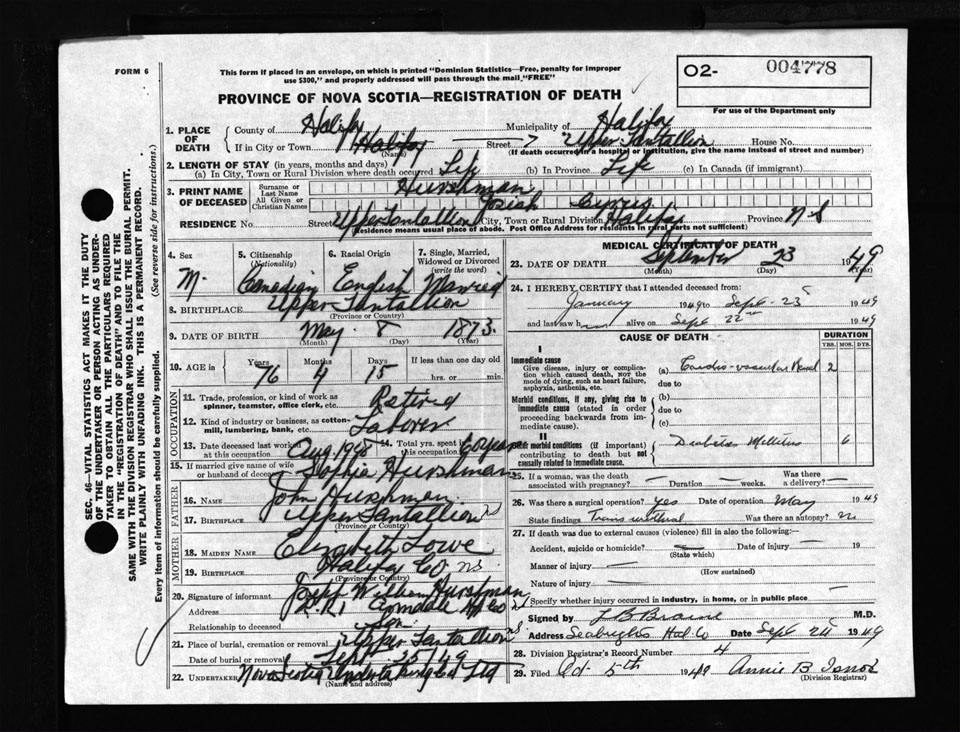 FORM 6
This form if placed in an envelope, on which is printed "Dominion Statistics—Free, penalty for improper
use $300," and properly addressed will pass through the mail "FREE"
O2- 004778
For use of the Department only
PROVINCE OF NOVA SCOTIA—REGISTRATION OF DEATH
SEC. 46—VITAL STATISTICS ACT MAKES IT THE DUTY
OF THE UNDERTAKER OR PERSON ACTING AS UNDER-
TAKER TO OBTAIN ALL THE PARTICULARS REQUIRED
IN THE "REGISTRATION OF DEATH" AND TO FILE THE
SAME WITH THE DIVISION REGISTRAR WHO SHALL ISSUE THE BURIAL PERMIT.
WRITE PLAINLY WITH UNFADING INK. THIS IS A PERMANENT RECORD.
Every item of information should be carefully supplied.
(See reverse side for instructions.)
1. PLACE OF DEATH
County of Halifax Municipality of Halifax
If in City or Town Halifax Street Upper Tantallion House No.
(Name) (If death occurred in a hospital or institution, give the name instead of street and number)
2. LENGTH OF STAY (in years, months and days)
(a) In City, Town or Rural Division where death occurred Life (b) In Province Life (c) In Canada (if immigrant)
3. PRINT NAME OF DECEASED
Surname or Last Name Hurshman
All Given or Christian Names Josiah Cyprus
RESIDENCE No. Street Upper Tantallion City, Town or Rural Division Halifax Province N S
(Residence means usual place of abode. Post Office Address for residents in rural parts not sufficient)
4. Sex M.
5. Citizenship (Nationality) Canadian
6. Racial Origin English
7. Single, Married, Widowed or Divorced (write the word) Married
8. BIRTHPLACE Upper Tantallion
(Province or Country)
9. DATE OF BIRTH May 8 1873
(Month) (Day) (Year)
10. AGE in Years 76 Months 4 Days 15 If less than one day old hrs. or min.
OCCUPATION
11. Trade, profession, or kind of work as
spinner, teamster, office clerk, etc. Retired
12. Kind of industry or business, as cotton-
mill, lumbering, bank, etc. Laborer
13. Date deceased last worked at this occupation Aug 1948 14. Total yrs. spent in this occupation 60 years
15. If married give name of wife or husband of deceased Sophia Hurshman
FATHER
16. Name John Hurshman
17. Birthplace Upper Tantallion NS
(Province or Country)
MOTHER
18. Maiden Name Elizabeth Lowe
19. Birthplace Halifax Co NS.
(Province or Country)
20. Signature of informant Joseph William Hurshman
Address R.R.1 Armdale Hfx Co NS
Relationship to deceased son.
21. Place of burial, cremation or removal Upper Tantallion NS.
Date of burial or removal Sept 25/49
22. Undertaker Nova Scotia Undertaking Co Ltd
(Name and address)
MEDICAL CERTIFICATE OF DEATH
23. DATE OF DEATH September 23 1949
(Month) (Day) (Year)
24. I HEREBY CERTIFY that I attended deceased from:
January 1949 to Sept 23 1949
and last saw h im alive on Sept 22nd 1949
CAUSE OF DEATH
DURATION
YRS. MOS. DYS.
I
Immediate cause
Give disease, injury or complica-
tion which caused death, NOT the
mode of dying, such as heart failure,
asphyxia, asthenia, etc.
(a) Cardio-vascular Renal 2
due to
Morbid conditions, if any, giving rise to
immediate cause (stated in order
proceeding backwards from im-
mediate cause).
(b)
due to
(c)
II
Other morbid conditions (if important)
contributing to death but not
causally related to immediate cause.
Diabetes Mellitus 6
25. If a woman, was the death associated with pregnancy? — Duration — weeks. Was there a delivery? —
26. Was there a surgical operation? Yes Date of operation May 1949
State findings Trans urethral Was there an autopsy? no
27. If death was due to external causes (violence) fill in also the following:—
Accident, suicide or homicide? — Date of injury — 19
(State which)
Manner of injury —
(How sustained)
Nature of injury —
Specify whether injury occurred in industry, in home, or in public place —
Signed by M.D.
Address Seabright Hal Co Date Sept 24 1949
28. Division Registrar's Record Number 4
29. Filed Oct 5th 1949 Annie B
(Division Registrar)